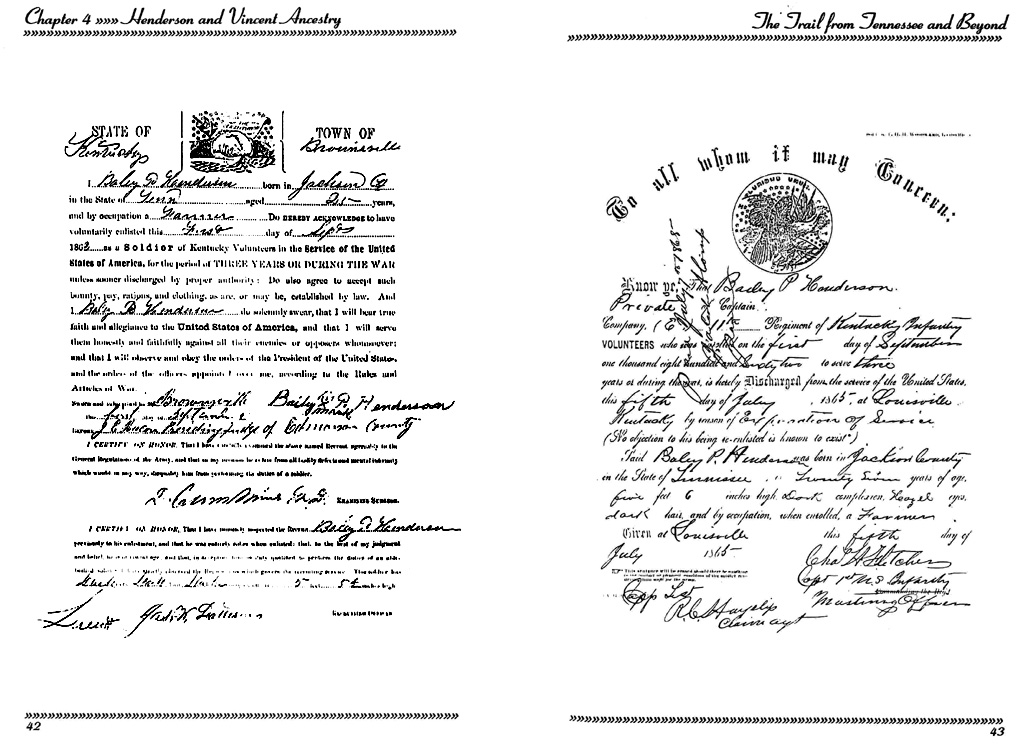 Chapter 4 »»» Henderson and Vincent Ancestry
STATE OF
TOWN OF
Kentucky
Brownsville
I, Baley P Henderson born in Jackson Co
in the State of Tenn aged years,
and by occupation a Farmer Do HEREBY ACKNOWLEDGE to have
voluntarily enlisted this First day of Sept
186 as a Soldier of Kentucky Volunteers in the Service of the United
States of America, for the period of THREE YEARS OR DURING THE WAR
unless sooner discharged by proper authority: Do also agree to accept such
bounty, pay, rations, and clothing, as are, or may be, established by law. And
I, Baley P Henderson do solemnly swear, that I will bear true
faith and allegiance to the United States of America, and that I will serve
them honestly and faithfully against all their enemies or opposers whomsoever;
and that I will observe and obey the orders of the President of the United States,
and the orders of the officers appointed over me, according to the Rules and
Articles of War.
Sworn and subscribed to at Brownsville Baily P Henderson
this first day of September
before Presiding Judge of Edmonson County
I CERTIFY ON HONOR, That I have carefully examined the above named Recruit agreeably to the
General Regulations of the Army, and that in my opinion he is free from all bodily defects and mental infirmity
which would in any way, disqualify him from performing the duties of a soldier.
EXAMINING SURGEON.
I CERTIFY ON HONOR, That I have minutely inspected the Recruit, Baley P Henderson
previously to his enlistment, and that he was entirely sober when enlisted; that, to the best of my judgment
and belief, he is of lawful age; and that, in accepting him as duly qualified to perform the duties of an able-
bodied soldier, I have strictly observed the Regulations which govern the recruiting service. This soldier has
5 feet inches high
Lieut
RECRUITING OFFICER
42
The Trail from Tennessee and Beyond
To all whom it may Concern:
Know ye, That Baily P Henderson
Private of Captain
Company, (E) 11th Regiment of Kentucky Infantry
VOLUNTEERS who was enrolled on the first day of September
one thousand eight hundred and sixty two to serve three
years or during the war, is hereby Discharged from the service of the United States,
this fifth day of July, 1865, at Louisville
Kentucky by reason of Expiration of Service
(No objection to his being re-enlisted is known to exist*)
Said Baley P. Henderson was born in Jackson County
in the State of Tennessee, is Twenty years of age,
five feet 6 inches high, Dark complexion, Hazel eyes,
dark hair, and by occupation, when enrolled, a Farmer
Given at Louisville this fifth day of
July 1865.
Chas H Fletcher
Capt 1st U.S. Infantry
Commanding the Reg't
Mustering Officer
Claim agt
43